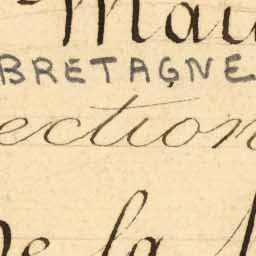 Mai
BRETAGNE
ection
de la